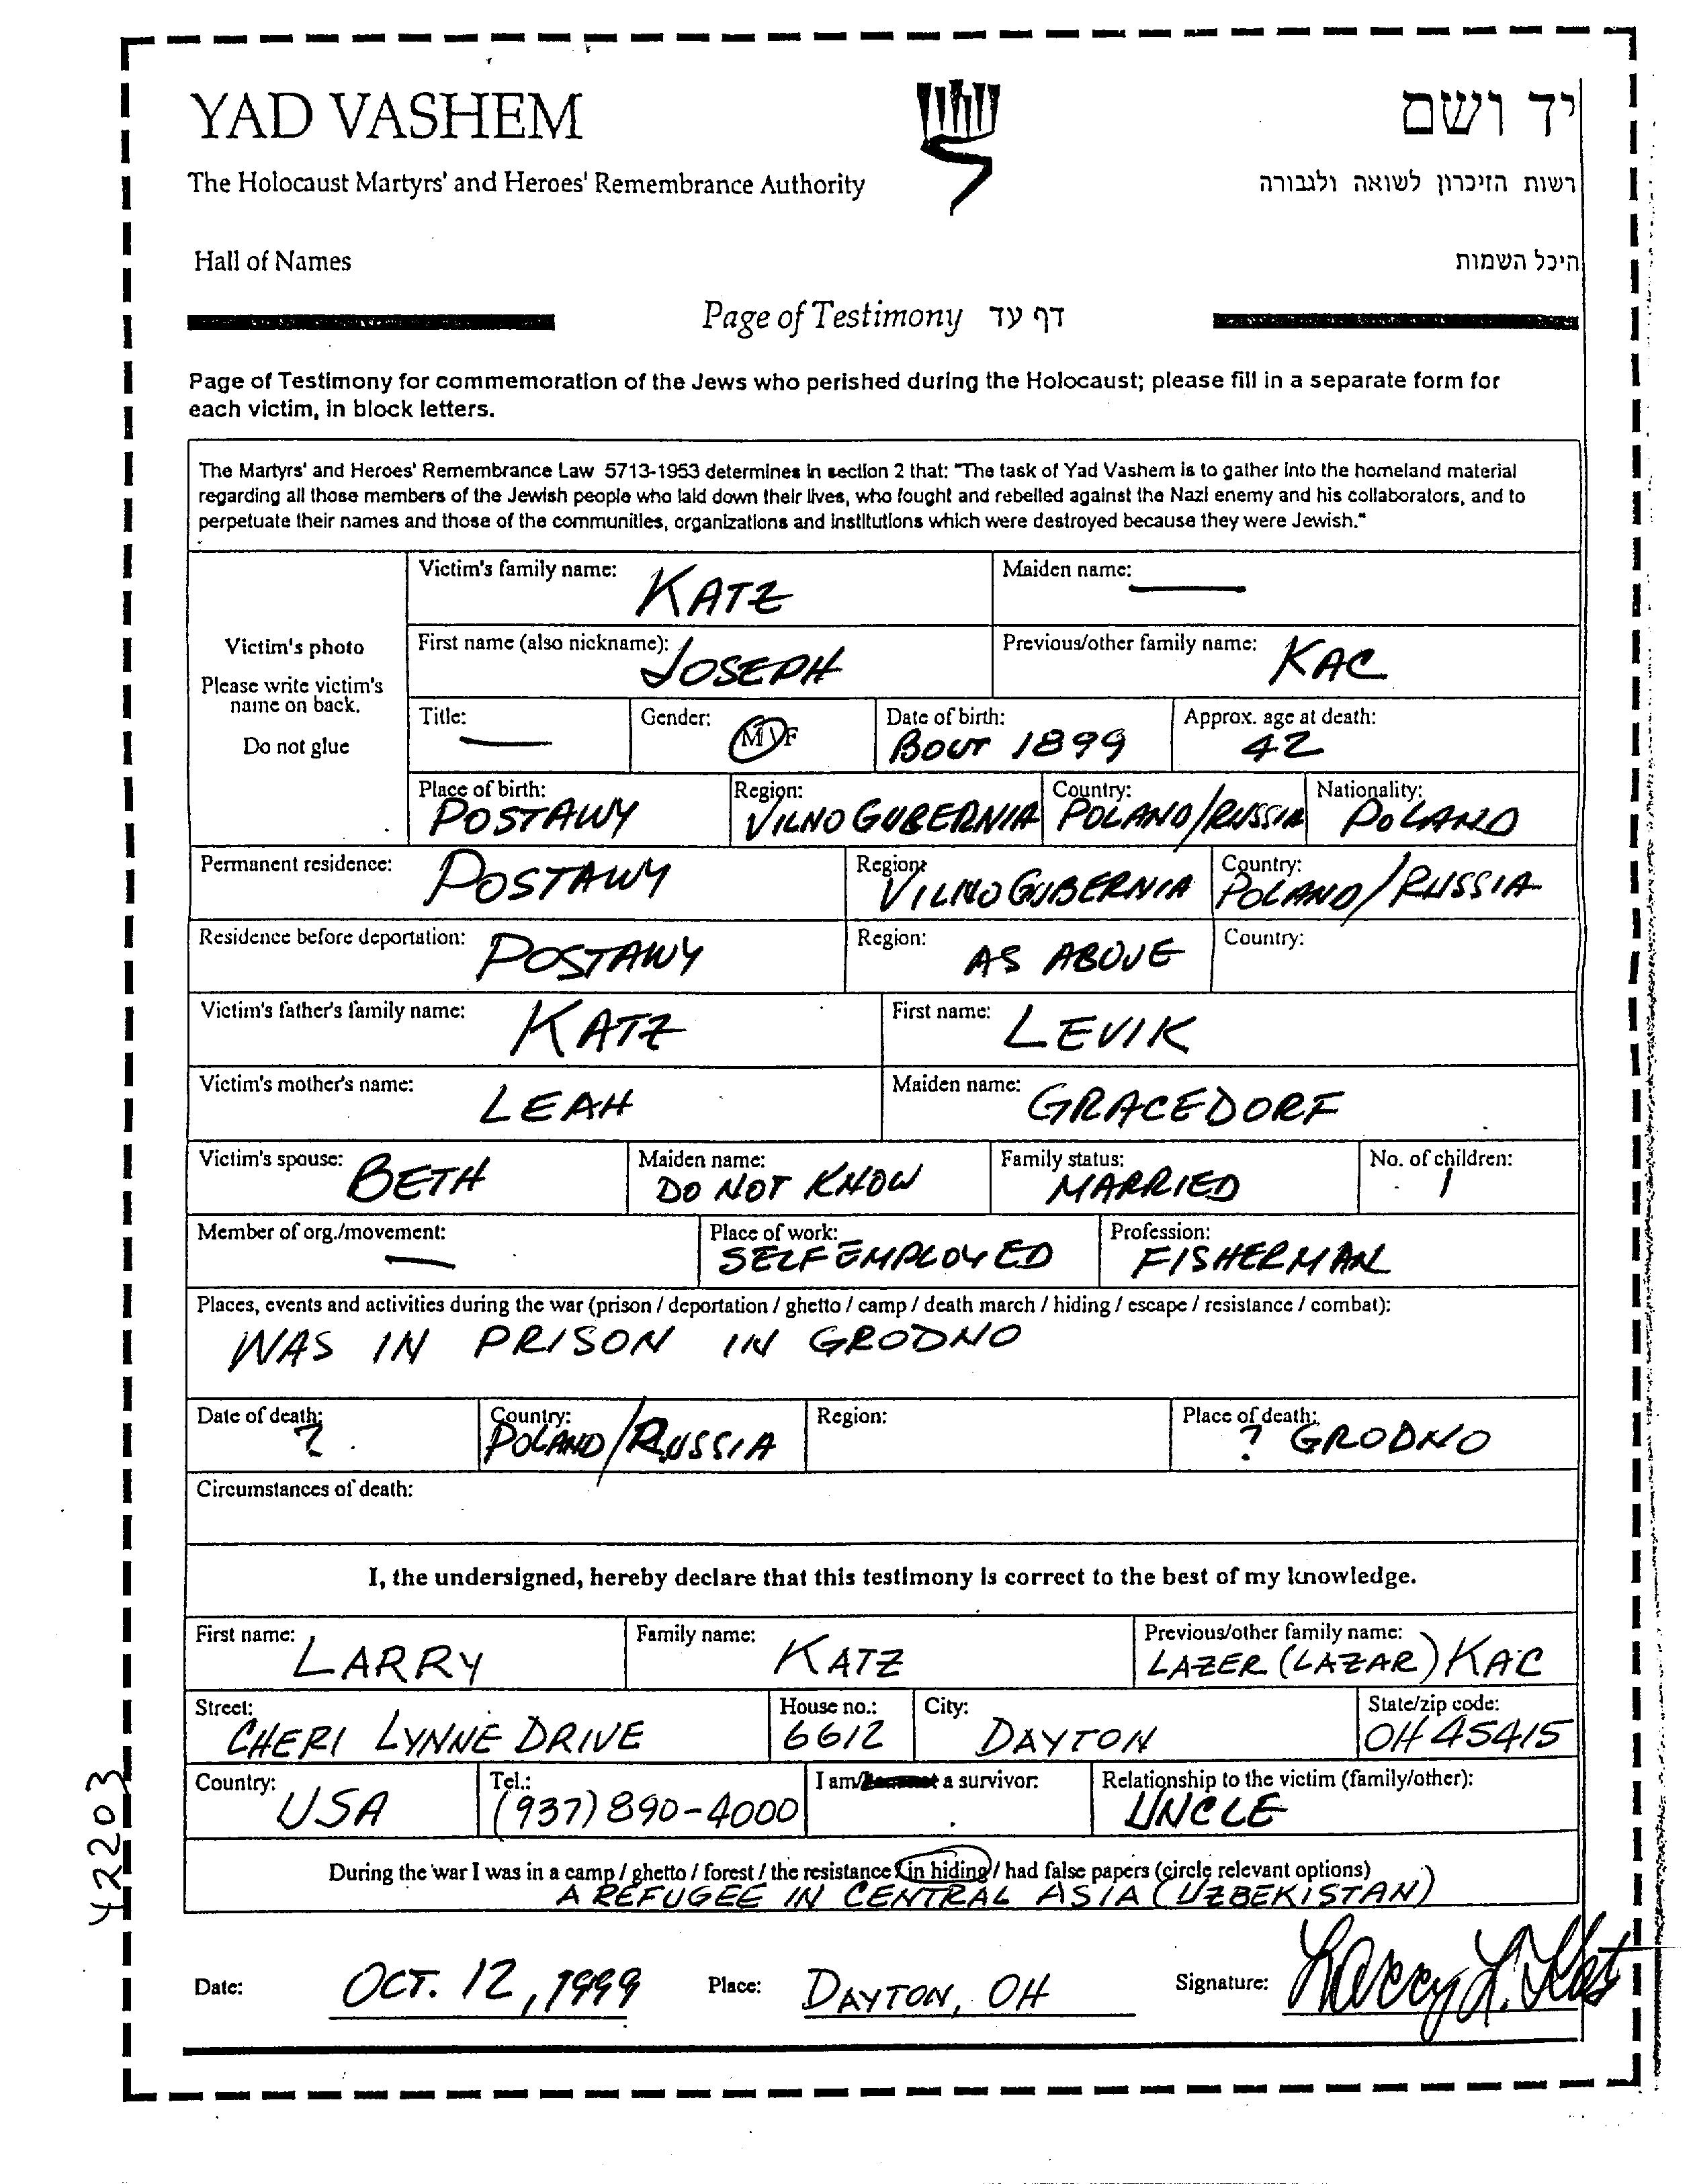 YAD VASHEM
יד ושם
The Holocaust Martyrs' and Heroes' Remembrance Authority
רשות הזיכרון לשואה ולגבורה
Hall of Names
היכל השמות
Page of Testimony דף עד
Page of Testimony for commemoration of the Jews who perished during the Holocaust; please fill in a separate form for
each victim, in block letters.
The Martyrs' and Heroes' Remembrance Law 5713-1953 determines in section 2 that: "The task of Yad Vashem is to gather into the homeland material
regarding all those members of the Jewish people who laid down their lives, who fought and rebelled against the Nazi enemy and his collaborators, and to
perpetuate their names and those of the communities, organizations and institutions which were destroyed because they were Jewish."
Victim's photo
Please write victim's
name on back.
Do not glue
Victim's family name: KATZ Maiden name: —
First name (also nickname): JOSEPH Previous/other family name: KAC
Title: — Gender: M / F Date of birth: BOUT 1899 Approx. age at death: 42
Place of birth: POSTAWY Region: VILNO GUBERNIA Country: POLAND/RUSSIA Nationality: POLAND
Permanent residence: POSTAWY Region: VILNO GUBERNIA Country: POLAND/RUSSIA
Residence before deportation: POSTAWY Region: AS ABOVE Country:
Victim's father's family name: KATZ First name: LEVIK
Victim's mother's name: LEAH Maiden name: GRACEDORF
Victim's spouse: BETH Maiden name: DO NOT KNOW Family status: MARRIED No. of children: 1
Member of org./movement: — Place of work: SELF EMPLOYED Profession: FISHERMAN
Places, events and activities during the war (prison / deportation / ghetto / camp / death march / hiding / escape / resistance / combat):
WAS IN PRISON IN GRODNO
Date of death: ? Country: POLAND/RUSSIA Region: Place of death: ? GRODNO
Circumstances of death:
I, the undersigned, hereby declare that this testimony is correct to the best of my knowledge.
First name: LARRY Family name: KATZ Previous/other family name: LAZER (LAZAR) KAC
Street: CHERI LYNNE DRIVE House no.: 6612 City: DAYTON State/zip code: OH 45415
Country: USA Tel.: (937) 890-4000 I am/ a survivor: Relationship to the victim (family/other): UNCLE
During the war I was in a camp / ghetto / forest / the resistance / in hiding / had false papers (circle relevant options)
A REFUGEE IN CENTRAL ASIA (UZBEKISTAN)
Date: OCT. 12, 1999 Place: DAYTON, OH Signature: Larry L. Katz
42203